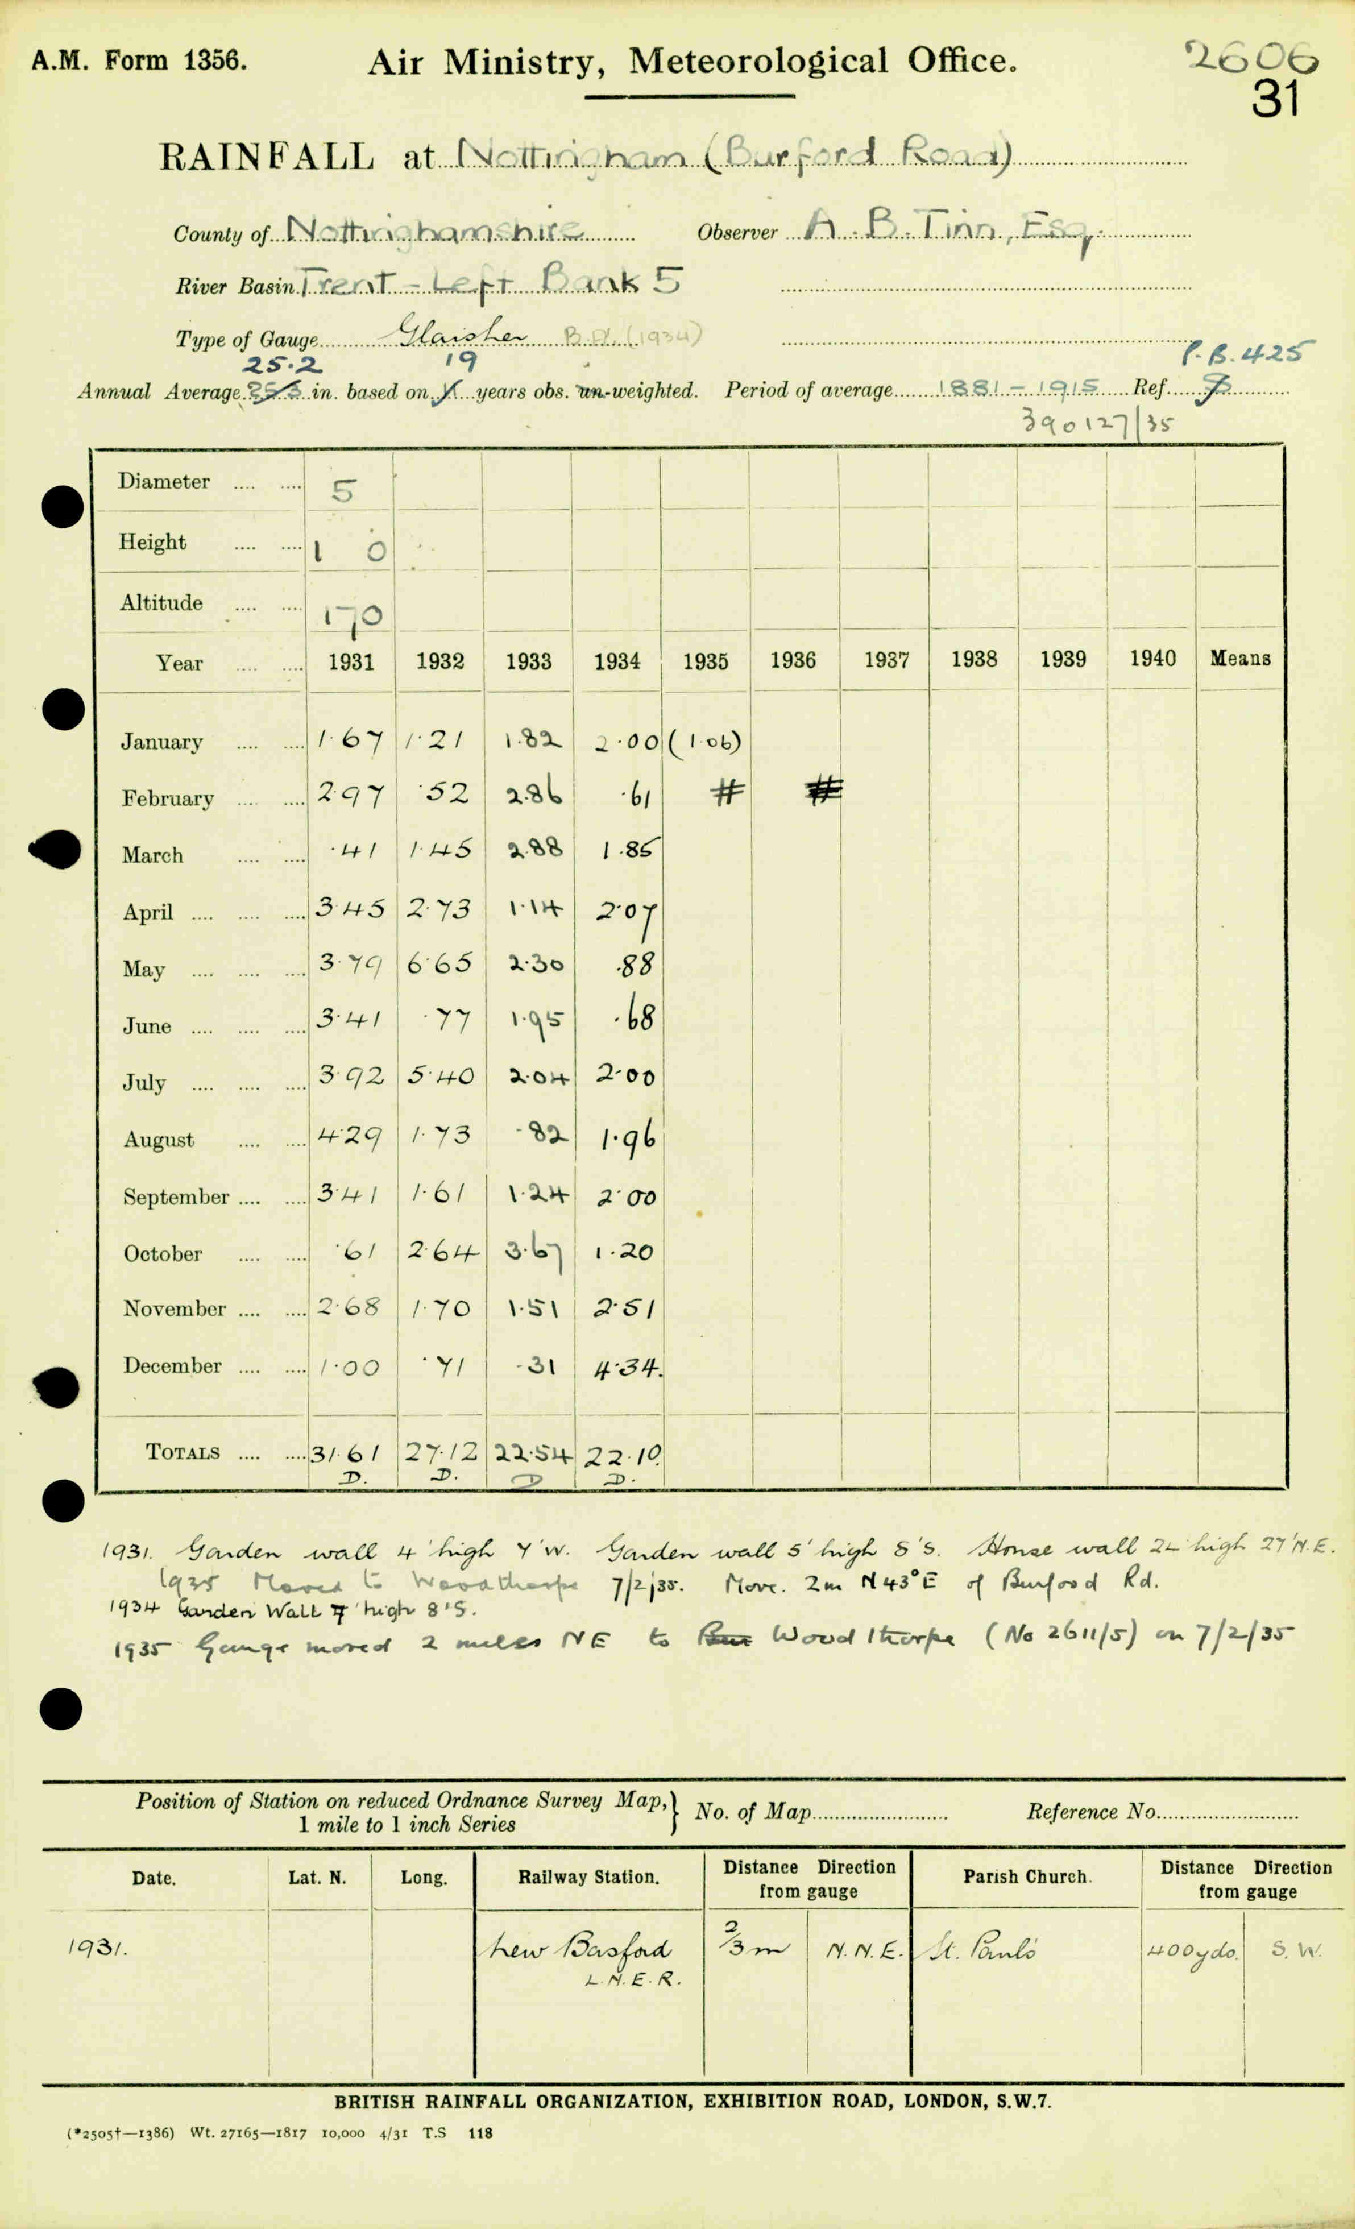 A.M. Form 1356.
Air Ministry, Meteorological Office.
2606
31
RAINFALL at Nottingham (Burford Road)
County of Nottinghamshire Observer A. B. Tinn, Esq.
River Basin Trent - Left Bank 5
Type of Gauge Glaisher B.N. (1934)
25.2 19 P.B. 425
Annual Average in. based on years obs. un-weighted. Period of average 1881 - 1915 Ref.
390127/35
Diameter 5
Height 1 0
Altitude 170
Year 1931 1932 1933 1934 1935 1936 1937 1938 1939 1940 Means
January 1.67 1.21 1.82 2.00 (1.06)
February 2.97 .52 2.86 .61 # #
March .41 1.45 2.88 1.85
April 3.45 2.73 1.14 2.07
May 3.79 6.65 2.30 .88
June 3.41 .77 1.95 .68
July 3.92 5.40 2.04 2.00
August 4.29 1.73 .82 1.96
September 3.41 1.61 1.24 2.00
October .61 2.64 3.67 1.20
November 2.68 1.70 1.51 2.51
December 1.00 .71 .31 4.34
TOTALS 31.61 27.12 22.54 22.10
D. D. D D.
1931. Garden wall 4' high 7' W. Garden wall 5' high 8' S. House wall 22' high 27' N.E.
1935 Moved to Woodthorpe 7/2/35. Move. 2m N43°E of Burford Rd.
1934 Garden Wall 7' high 8' S.
1935 Gauge moved 2 miles NE to Woodthorpe (No 2611/5) on 7/2/35
Position of Station on reduced Ordnance Survey Map,} No. of Map Reference No.
1 mile to 1 inch Series
Date. Lat. N. Long. Railway Station. Distance Direction from gauge Parish Church. Distance Direction from gauge
1931. New Basford 2/3 m N.N.E. St. Paul's 400 yds. S.W.
L.N.E.R.
BRITISH RAINFALL ORGANIZATION, EXHIBITION ROAD, LONDON, S.W.7.
(*2505†—1386) Wt. 27165—1817 10,000 4/31 T.S 118